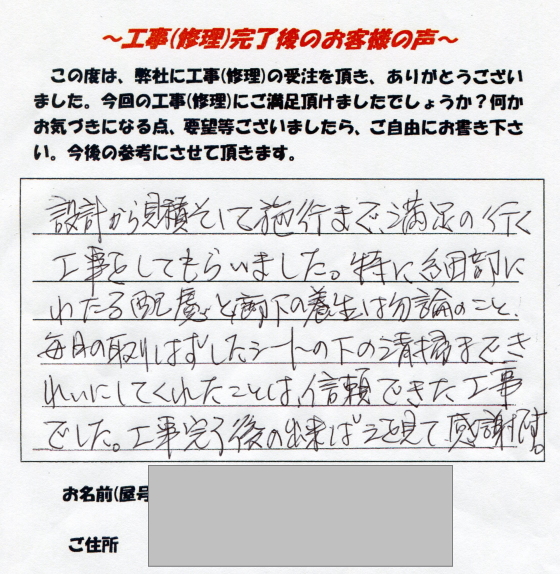 ～工事(修理)完了後のお客様の声～
この度は、弊社に工事(修理)の受注を頂き、ありがとうござい
ました。今回の工事(修理)にご満足頂けましたでしょうか？何か
お気づきになる点、要望等ございましたら、ご自由にお書き下さ
い。今後の参考にさせて頂きます。
設計から見積そして施行まで、満足の行く
工事をしてもらいました。特に細部に
わたる配慮と廊下の養生は勿論のこと、
毎日の取りはずしたシートの下の清掃までき
れいにしてくれたことは、信頼できた工事
でした。工事完了後の出来ばえを見て感謝です。
お名前(屋号
ご住所